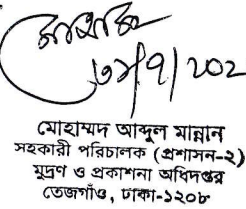 ৩১/৭/২০২
মোহাম্মদ আব্দুল মান্নান
সহকারী পরিচালক (প্রশাসন-২)
মুদ্রণ ও প্রকাশনা অধিদপ্তর
তেজগাঁও, ঢাকা-১২০৮